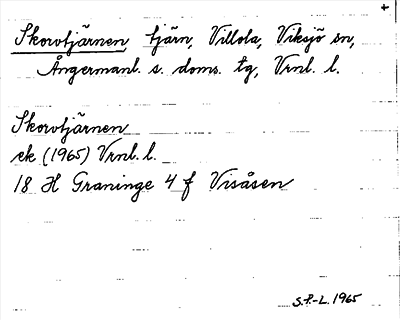 +
Skorvtjärnen tjärn, Villola, Viksjö sn,
Ångermanl. s. doms. tg, Vrnl. l.
Skorvtjärnen
ek (1965) Vrnl. l.
18 H Graninge 4 f Visåsen
S.F.-L. 1965